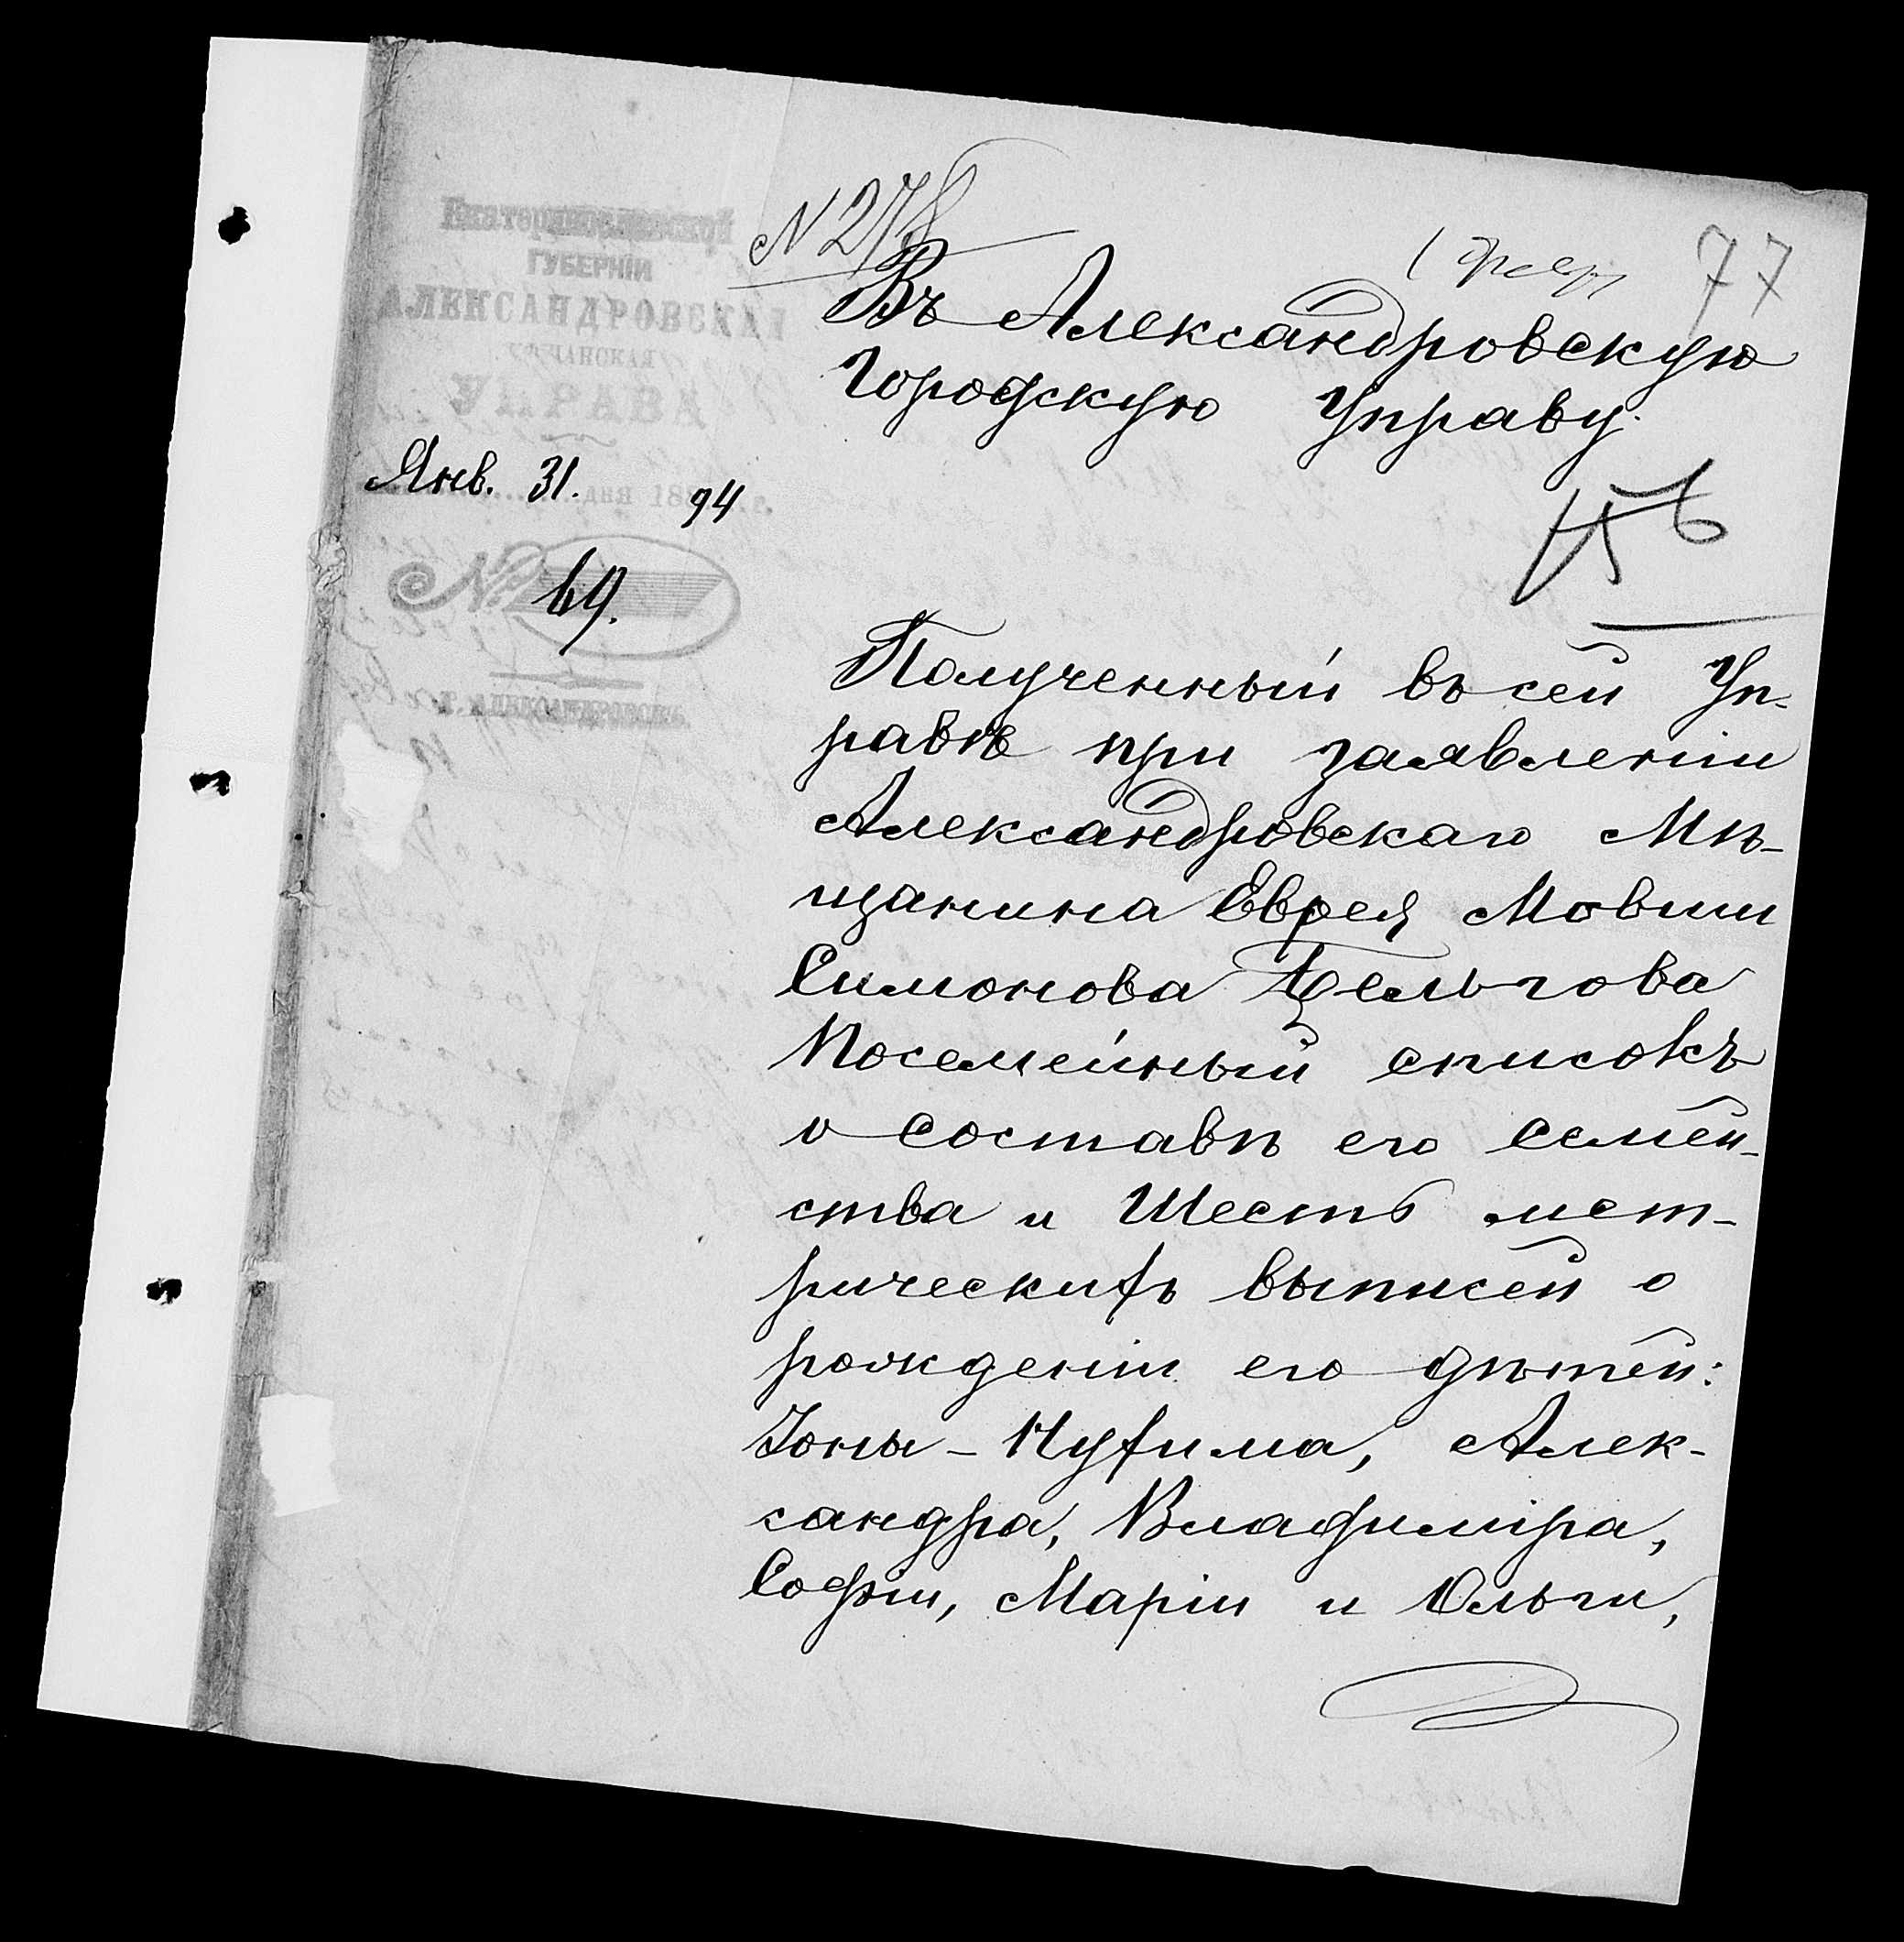 № 278
77
Екатеринославской
ГУБЕРНІИ
АЛЕКСАНДРОВСКАЯ
МѢЩАНСКАЯ
УПРАВА
Янв. 31. дня 1894 г.
№ 69.
Г. АЛЕКСАНДРОВСКЪ.
Въ Александровскую
Городскую Управу.
Полученный въ сей Уп-
равѣ при заявленіи
Александровскаго Мѣ-
щанина Еврея Мовши
Симонова
Посемейный списокъ
о составѣ его семей-
ства и Шесть мет-
рическихъ выписей о
рожденіи его дѣтей:
Іоны-Нухима, Алек-
сандра, Владиміра,
Софіи, Маріи и Ольги,